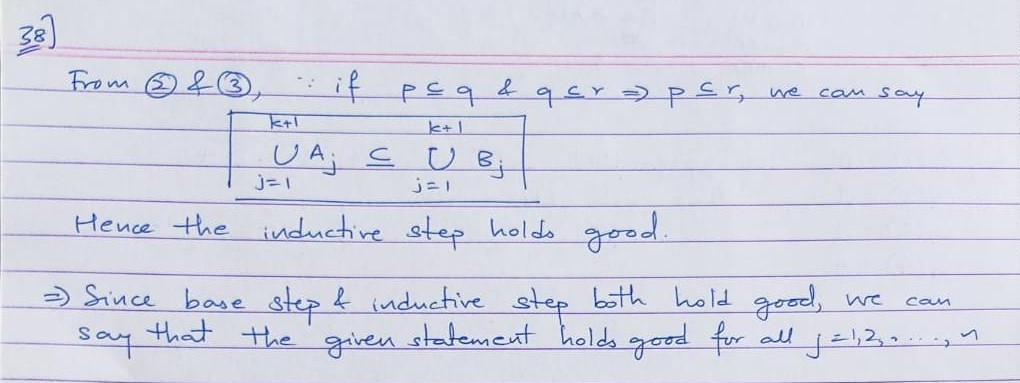 38]
From ② & ③, ∵ if p ⊆ q & q ⊆ r ⇒ p ⊆ r, we can say
k+1 k+1
∪ A_j ⊆ ∪ B_j
j=1 j=1
Hence the inductive step holds good.
⇒ Since base step & inductive step both hold good, we can
say that the given statement holds good for all j=1,2,....., n